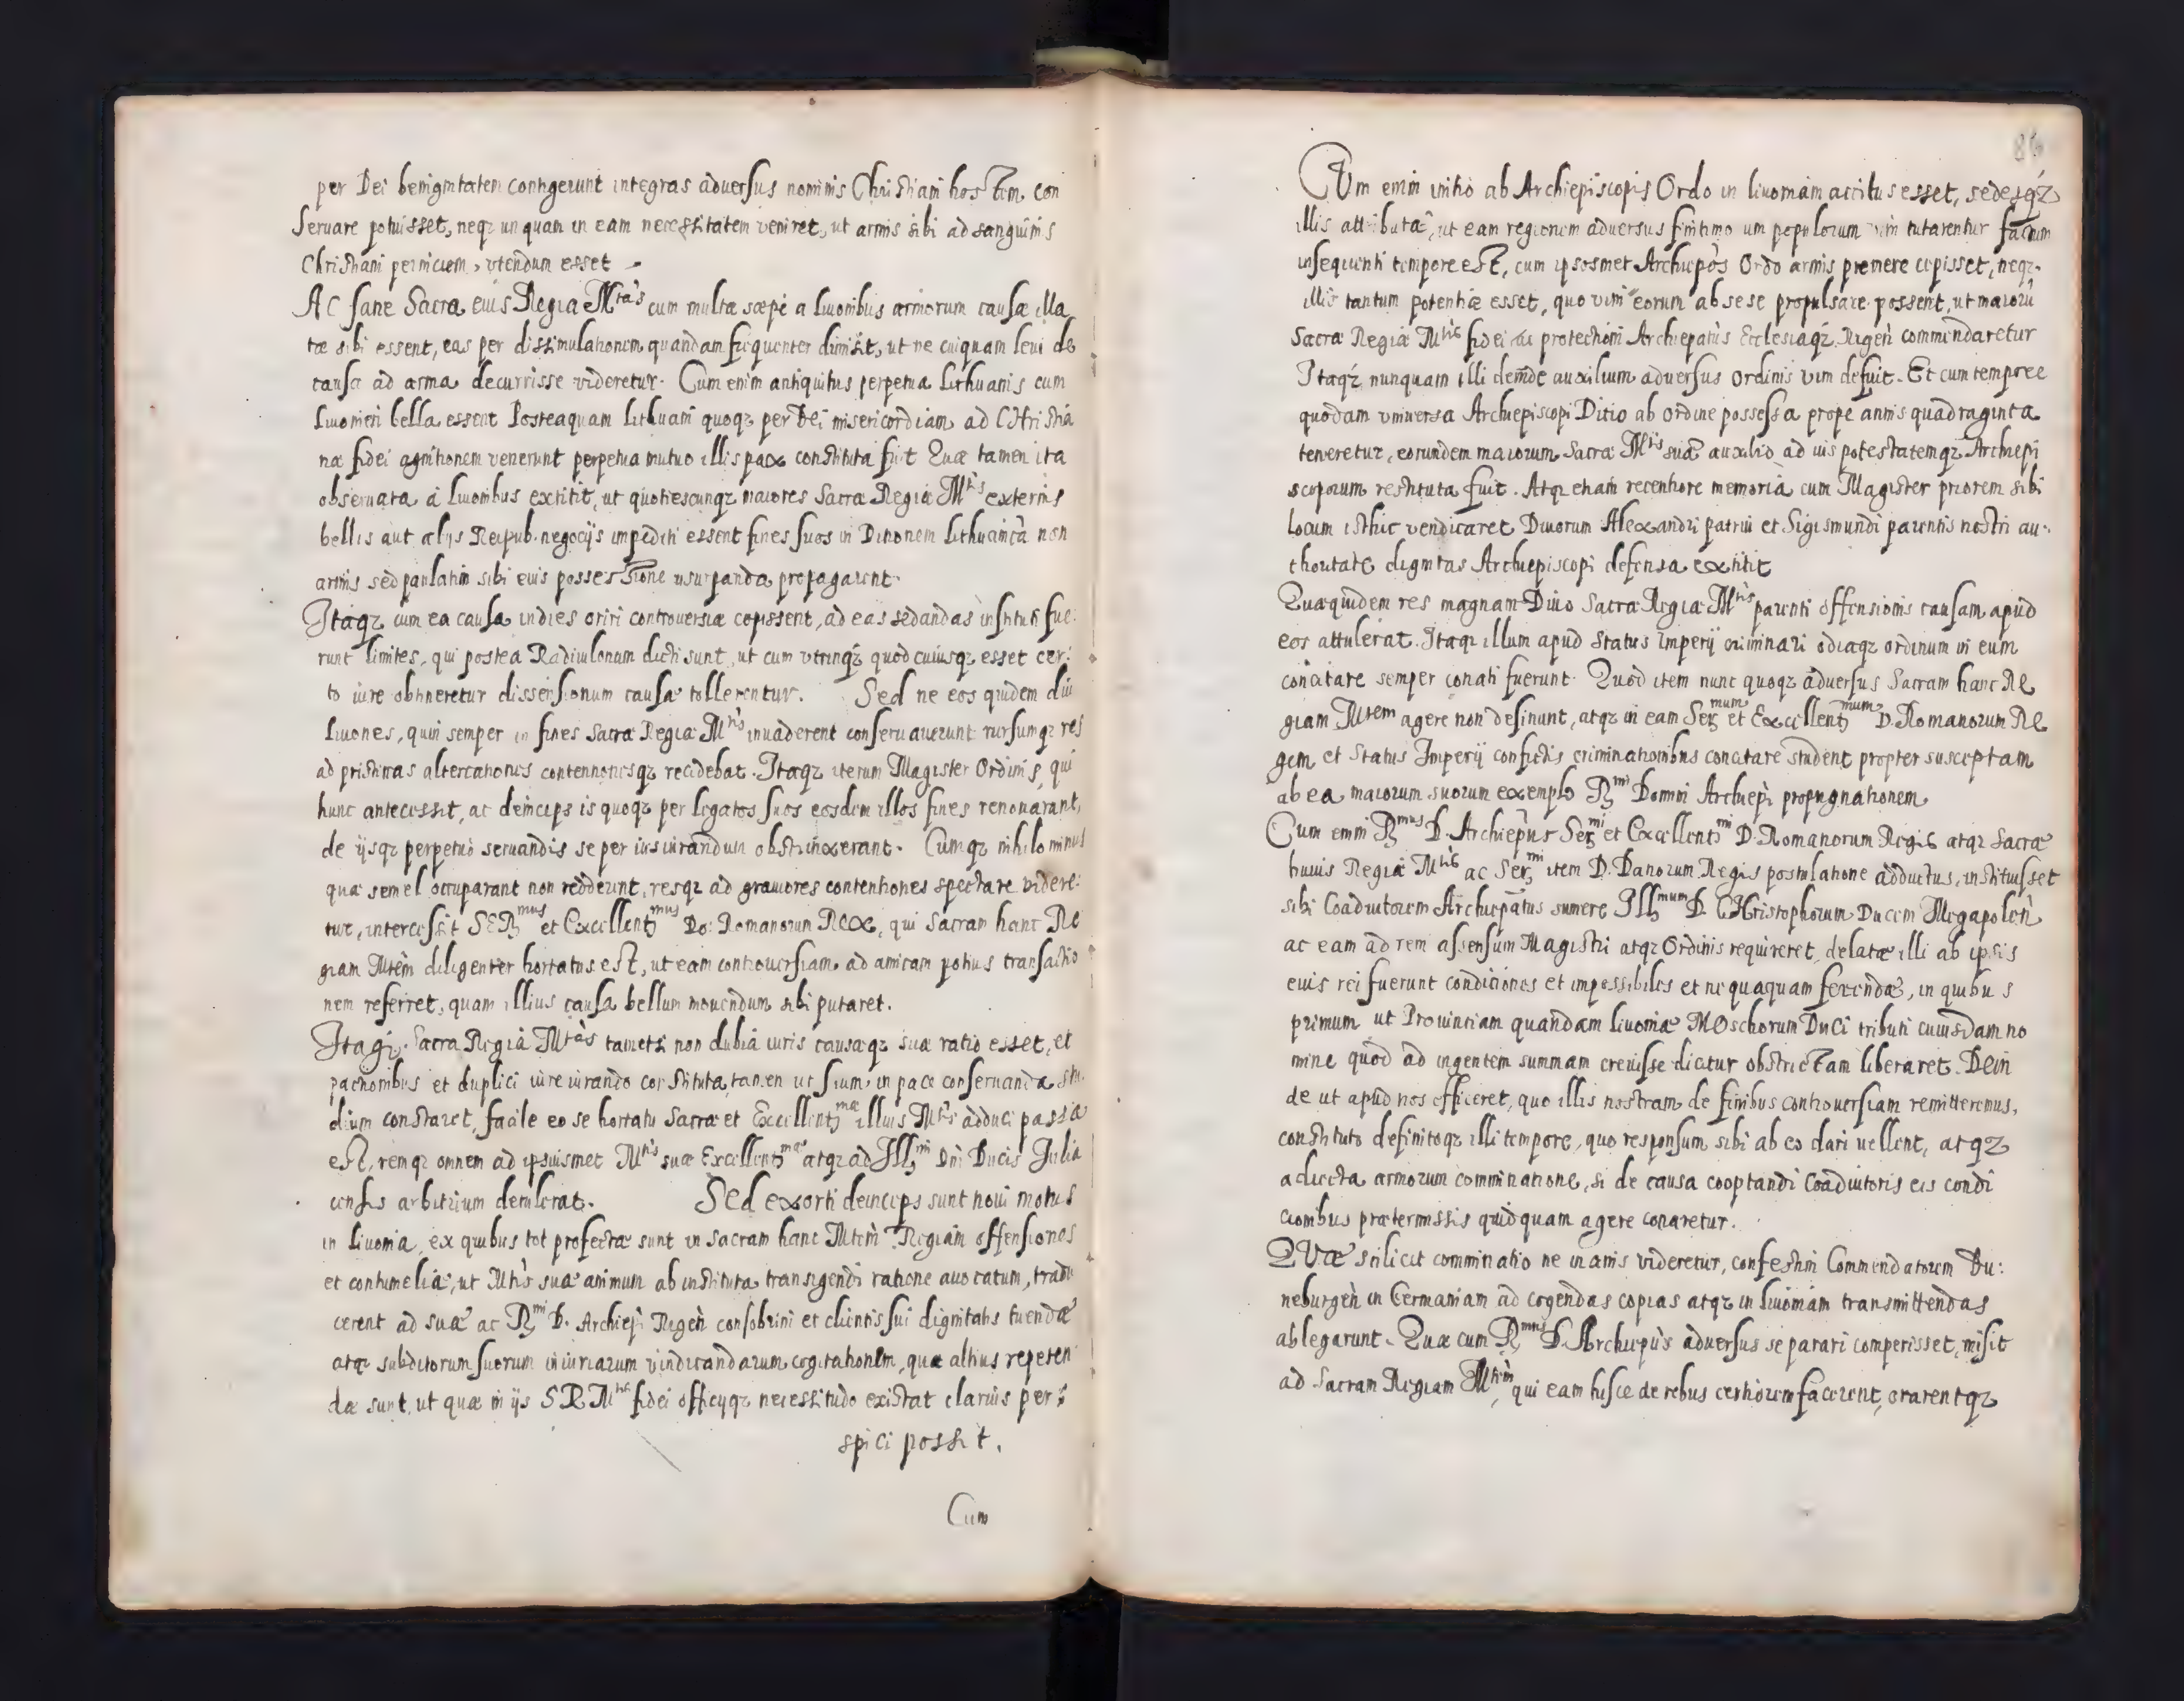 per Dei benignitatem contigerunt integras aduersus nominis Christiani hostem con
seruare potuisset, neqz unquam in eam necessitatem veniret, ut armis sibi ad sanguinis
Christiani perniciem, vtendum esset
AC sane Sacra eius Regia Mtas cum multæ sæpe a Liuonibus armorum causæ illa
tæ sibi essent, eas per dissimulationem quandam frequenter dimisit, ut ne cuiquam leui de
causa ad arma decurrisse videretur. Cum enim antiquitus perpetua Lithuanis cum
Liuonien bella essent Posteaquam Lithuani quoqz per Dei misericordiam ad CHristia
næ fidei agnitionem venerunt perpetua mutuo illis pax constituta fuit Quæ tamen ita
obseruata á Liuonibus extitit, ut quotiescunqz maiores Sacræ Regiæ Mtis externis
bellis aut alijs Reipub. negocijs impediti essent fines suos in Ditionem Lithuanicã non
armis sed paulatim sibi eius possessione usurpanda propagarent.
Itaqz cum ea causa indies oriri controuersiæ cepissent, ad eas sedandas instituti fue:
runt limites, qui postea Radiuilonum dicti sunt, ut cum vtrinqz quod cuiusqz esset cer:
to iure obtineretur dissensionum causæ tollerentur. Sed ne eos quidem diu
Liuones, quin semper in fines Sacræ Regiæ Mtis inuaderent conseruauerunt rursumqz res
ad pristinas altercationes contentionesqz recidebat. Itaqz iterum Magister Ordinis, qui
hunc antecessit, ac deinceps is quoqz per legatos suos eosdem illos fines renouarant,
de ijsqz perpetuó seruandis se per iusiurandum obstrinxerant. Cumqz nihilo minus
quæ semel occuparant non redderent, resqz ad grauiores contentiones spectare videre:
tur, intercessit SERmus et Excellentmus Do: Romanorum REX, qui Sacram hanc Re
giam Mtem diligenter hortatus est, ut eam controuersiam ad amicam potius transactio
nem referret, quam illius causa bellum mouendum sibi putaret.
Itaqz Sacra Regia Mtas tametsi non dubia iuris causæqz suæ ratio esset, et
pactionibus et duplici iureiurando constituta, tamen ut suum in pace conseruanda stu
dium constaret, facile eo se hortatu Sacræ et Excellentmæ illius Mtis adduci passa
est, remqz omnem ad ipsiusmet Mtis suæ Excellentmæ atqz ad Illmi Dni Ducis Julia
censis arbitrium detulerat. Sed exorti deinceps sunt noui motus
in Liuonia, ex quibus tot profectæ sunt in Sacram hanc Mtem Regiam offensiones
et contumeliæ, ut Mtis suæ animum ab instituta transigendi ratione auocatum, tradu
cerent ad suæ ac Rmi D. Archiepi Rigen consobrini et clientis sui dignitatis tuendæ
atqz subditorum suorum iniuriarum vindicandarum cogitationem, quæ altius repeten
dæ sunt, ut quæ in ijs S R Mtis fidei officijqz necessitudo existat clarius per:
spici possit.
Cum
86
CUm enim initio ab Archiepiscopis Ordo in Liuoniam accitus esset, sedesqz
illis attributæ, ut eam regionem aduersus finitimorum populorum vim tutarentur factum
insequenti tempore est, cum ipsosmet Archiepos Ordo armis premere cepisset, neqz
illis tantum potentiæ esset, quo vim eorum ab sese propulsare possent, ut maiorũ
Sacræ Regiæ Mtis fidei ac protectioni Archiepatus Ecclesiaqz Rigen commendaretur
Itaqz nunquam illi deinde auxilium aduersus Ordinis vim defuit. Et cum tempore
quodam vniuersa Archiepiscopi Ditio ab Ordine possessa prope annis quadraginta
teneretur, eorundem maiorum Sacræ Mtis suæ auxilio ad ius potestatemqz Archiepi
scoporum restituta fuit. Atqz etiam recentiore memoria cum Magister priorem sibi
locum isthic vendicaret Diuorum Alexandri patrui et Sigismundi parentis nostri au:
thoritate dignitas Archiepiscopi defensa extitit
Quæquidem res magnam Diuo Sacræ Regiæ Mtis parenti offensionis causam apud
eos attulerat. Itaqz illum apud Status Imperij criminari odiaqz ordinum in eum
concitare semper conati fuerunt. Quod item nunc quoqz aduersus Sacram hanc Re
giam Mtem agere non desinunt, atqz in eam Sermum et Excellentmum D. Romanorum Re
gem et Status Imperij confictis criminationibus concitare student propter susceptam
ab ea maiorum suorum exemplo Rmi Domini Archiepi propugnationem
Cum enim Rmus D. Archiepus Sermi et Excellentmi D. Romanorum Regis atqz Sacræ
huius Regiæ Mtis ac Sermi item D. Danorum Regis postulatione adductus, instituisset
sibi Coadiutorem Archiepatus sumere Illmum D. CHristophorum Ducem Megapolen
ac eam ad rem assensum Magistri atqz Ordinis requireret, delatæ illi ab ipsis
eius rei fuerunt condiciones et impossibiles et nequaquam ferendæ, in quibus
primum ut Prouinciam quandam Liuoniæ MOschorum Duci tributi cuiusdam no
mine quod ad ingentem summam creuisse dicitur obstrictam liberaret. Dein
de ut apud nos efficeret, quo illis nostram de finibus controuersiam remitteremus,
constituto definitoqz illi tempore, quo responsum sibi ab eo dari uellent, atqz
adiecta armorum comminatione, si de causa cooptandi Coadiutoris eis condi
cionibus prætermissis quidquam agere conaretur.
QVæ scilicet comminatio ne inanis videretur, confestim Commendatorem Du:
neburgen in Germaniam ad cogendas copias atqz in Liuoniam transmittendas
ablegarunt. Quæ cum Rmus D. Archiepus aduersus se parari comperisset, misit
ad Sacram Regiam Mtem, qui eam hisce de rebus certiorem facerent, orarentqz